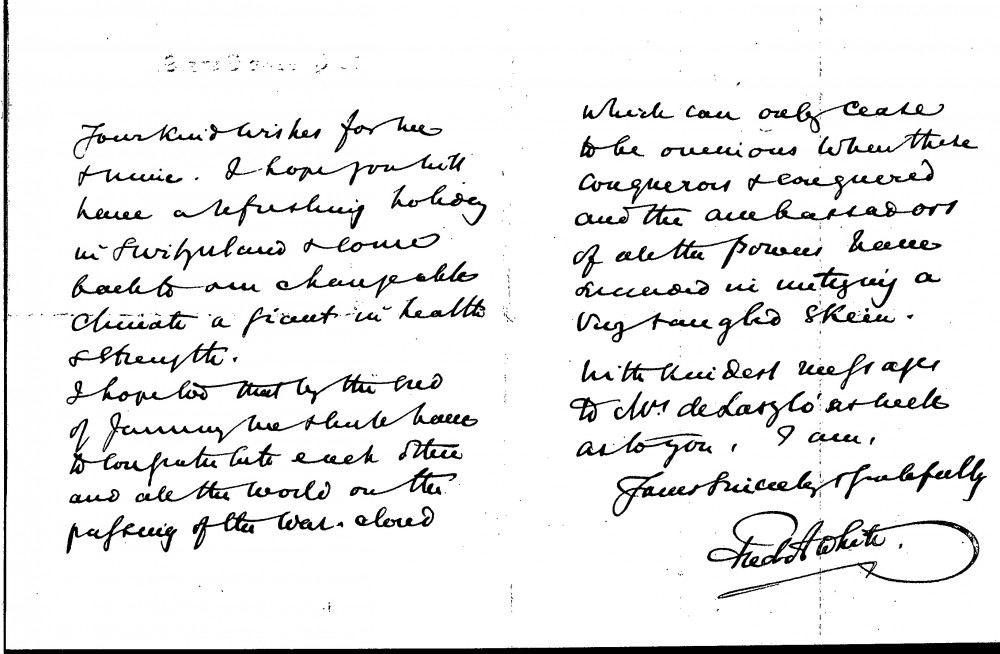 Your kind wishes for me
& mine. I hope you will
have a refreshing holiday
in Switzerland & come
back to our changeable
climate a giant in health
& strength.
I hope too that by the end
of January we shall have
to congratulate each other
and all the world on the
passing of the war-cloud
which can only cease
to be ominous when these
conquerors & conquered
and the ambassadors
of all the powers have
succeeded in untying a
very tangled skein.
With kindest messages
to Mrs. de László as well
as to you, I am,
Yours sincerely & gratefully
Fredk A White.